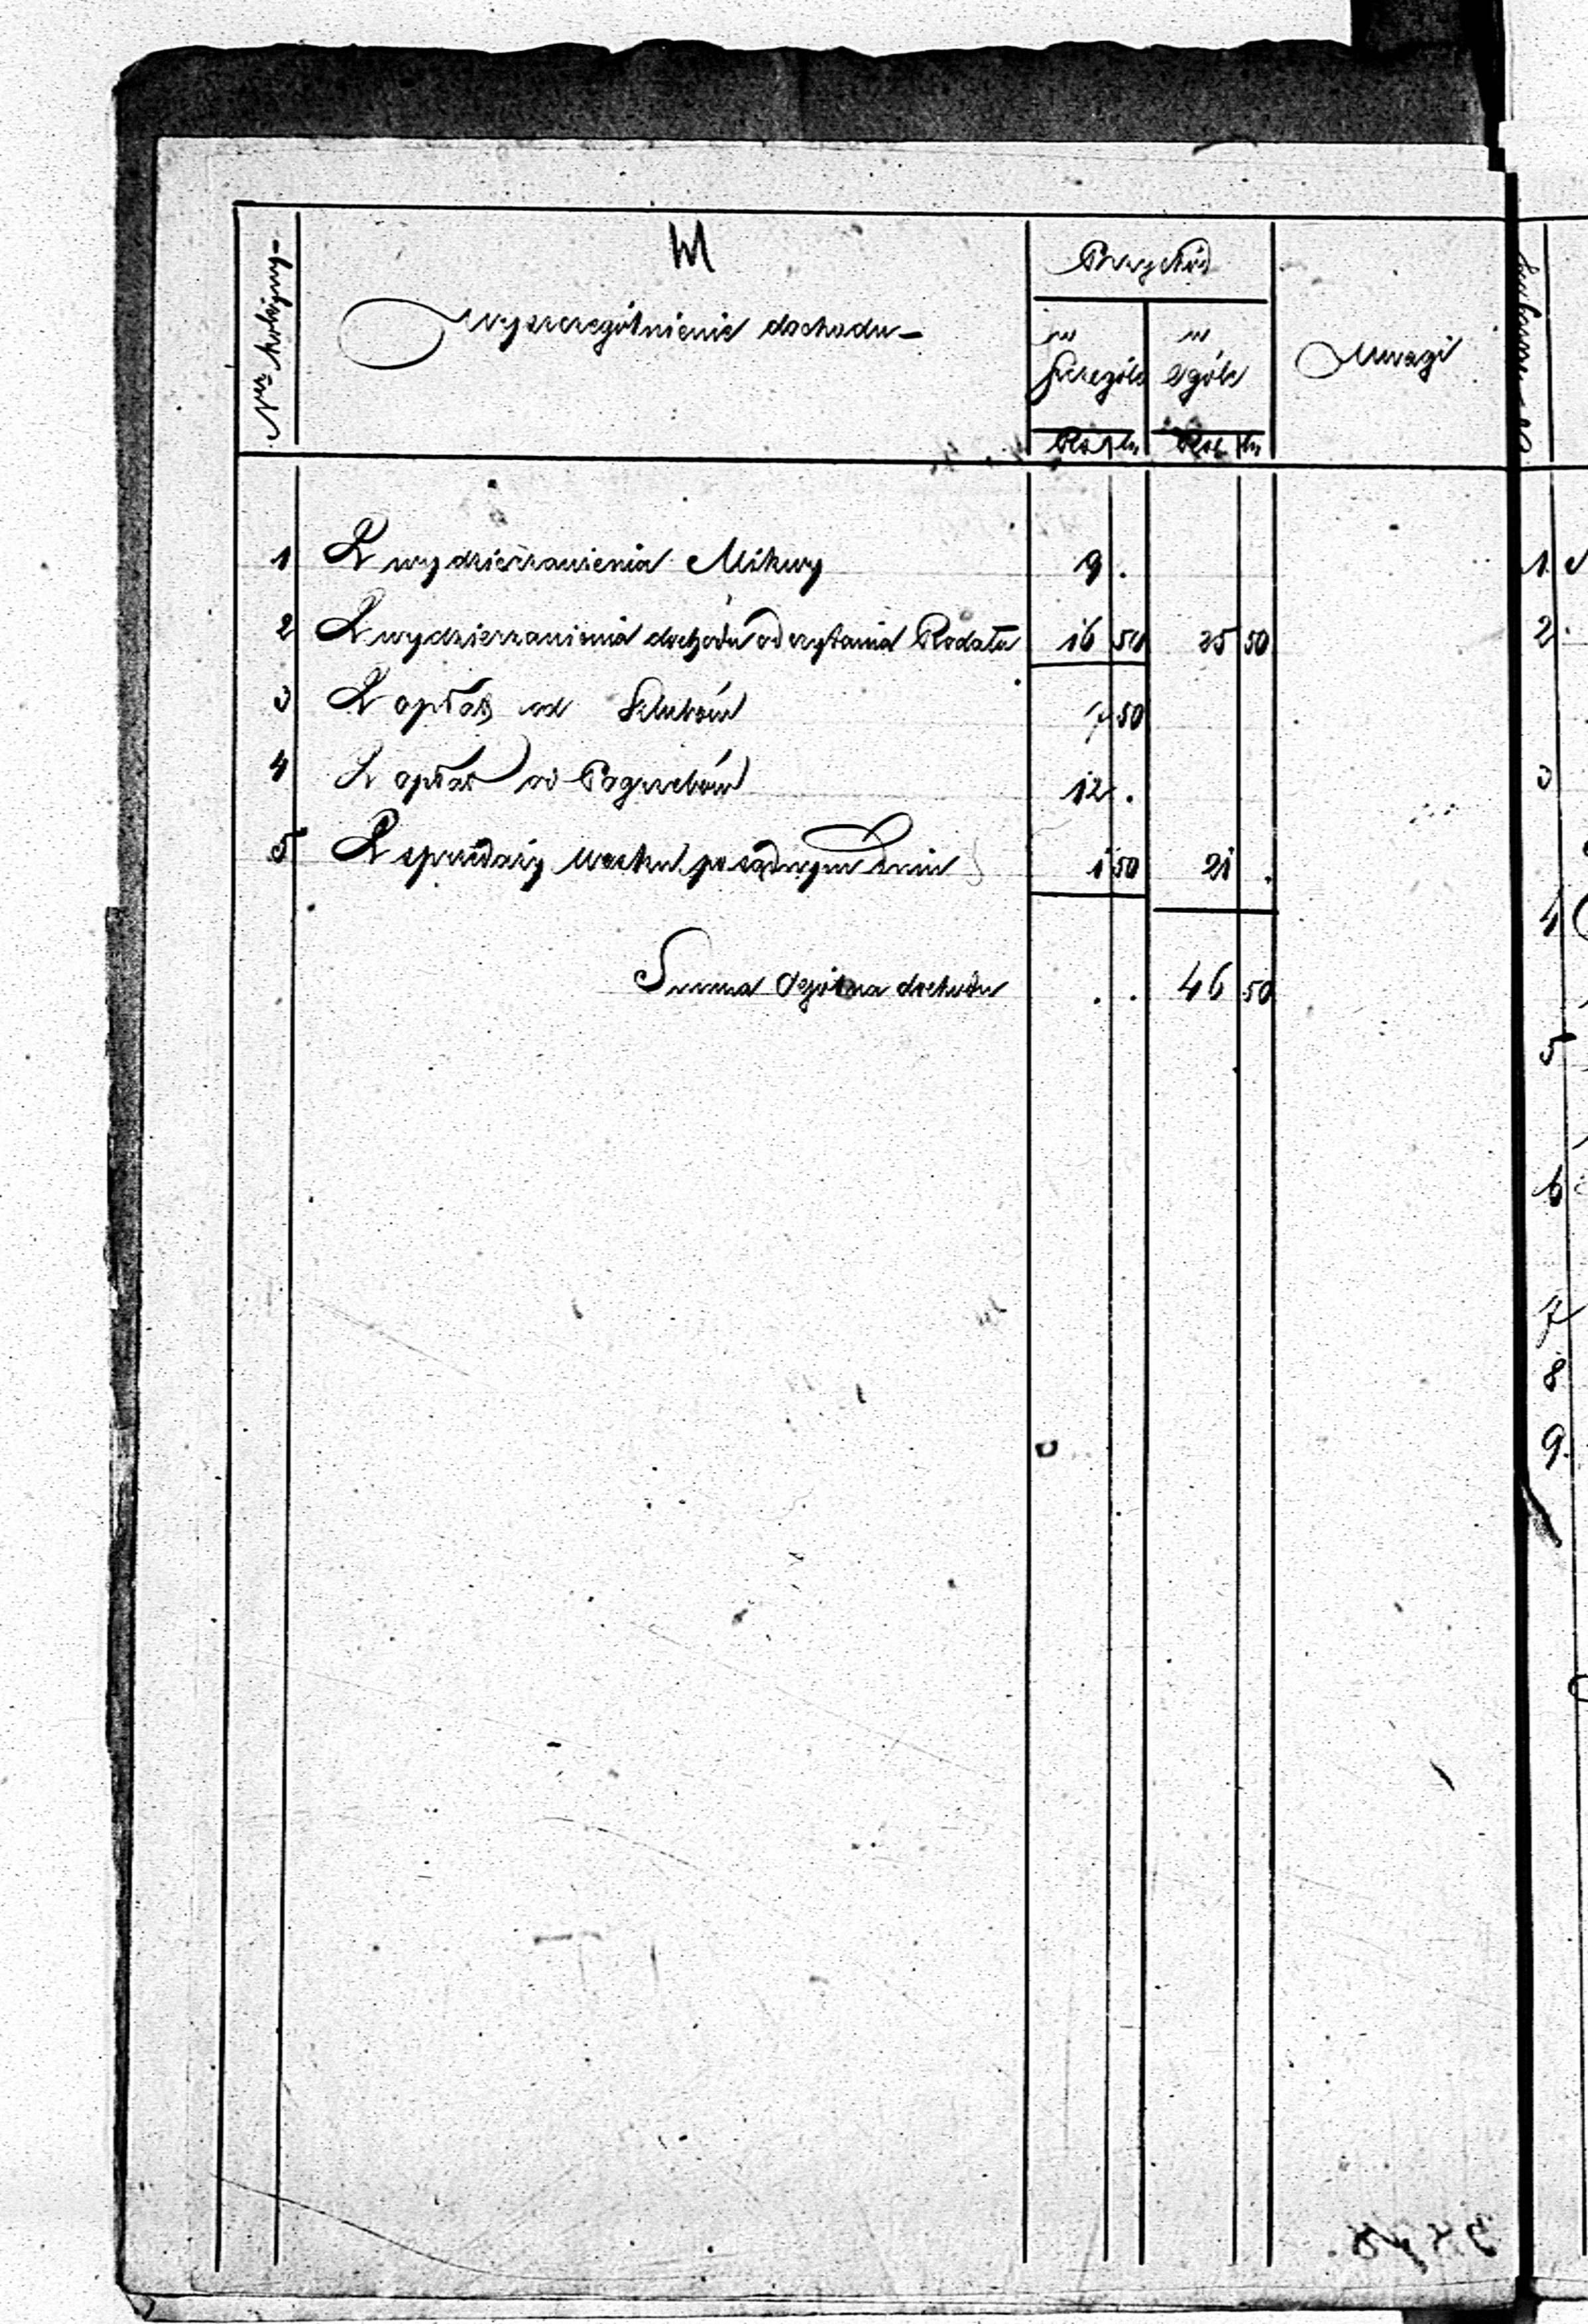 Nr kolejny
W
Wyszczególnienie dochodu
Przychód
w
Szczególe
w
Ogóle
Uwagi
Rs. k.
Rs. k.
1 Z wydzierżawienia Mikwy 9 .
2 Z wydzierżawienia dochodu od czytania Rodału 16 50 25 50
3 Z opłat od Szlubów 7 50
4 Z opłat od Pogrzebów 12 .
5 Z sprzedaży Wosku po sądnym dniu 1 50 21 .
Summa Ogólna dochodu . . 46 50
1
2
3
4
5
6
7
8
9